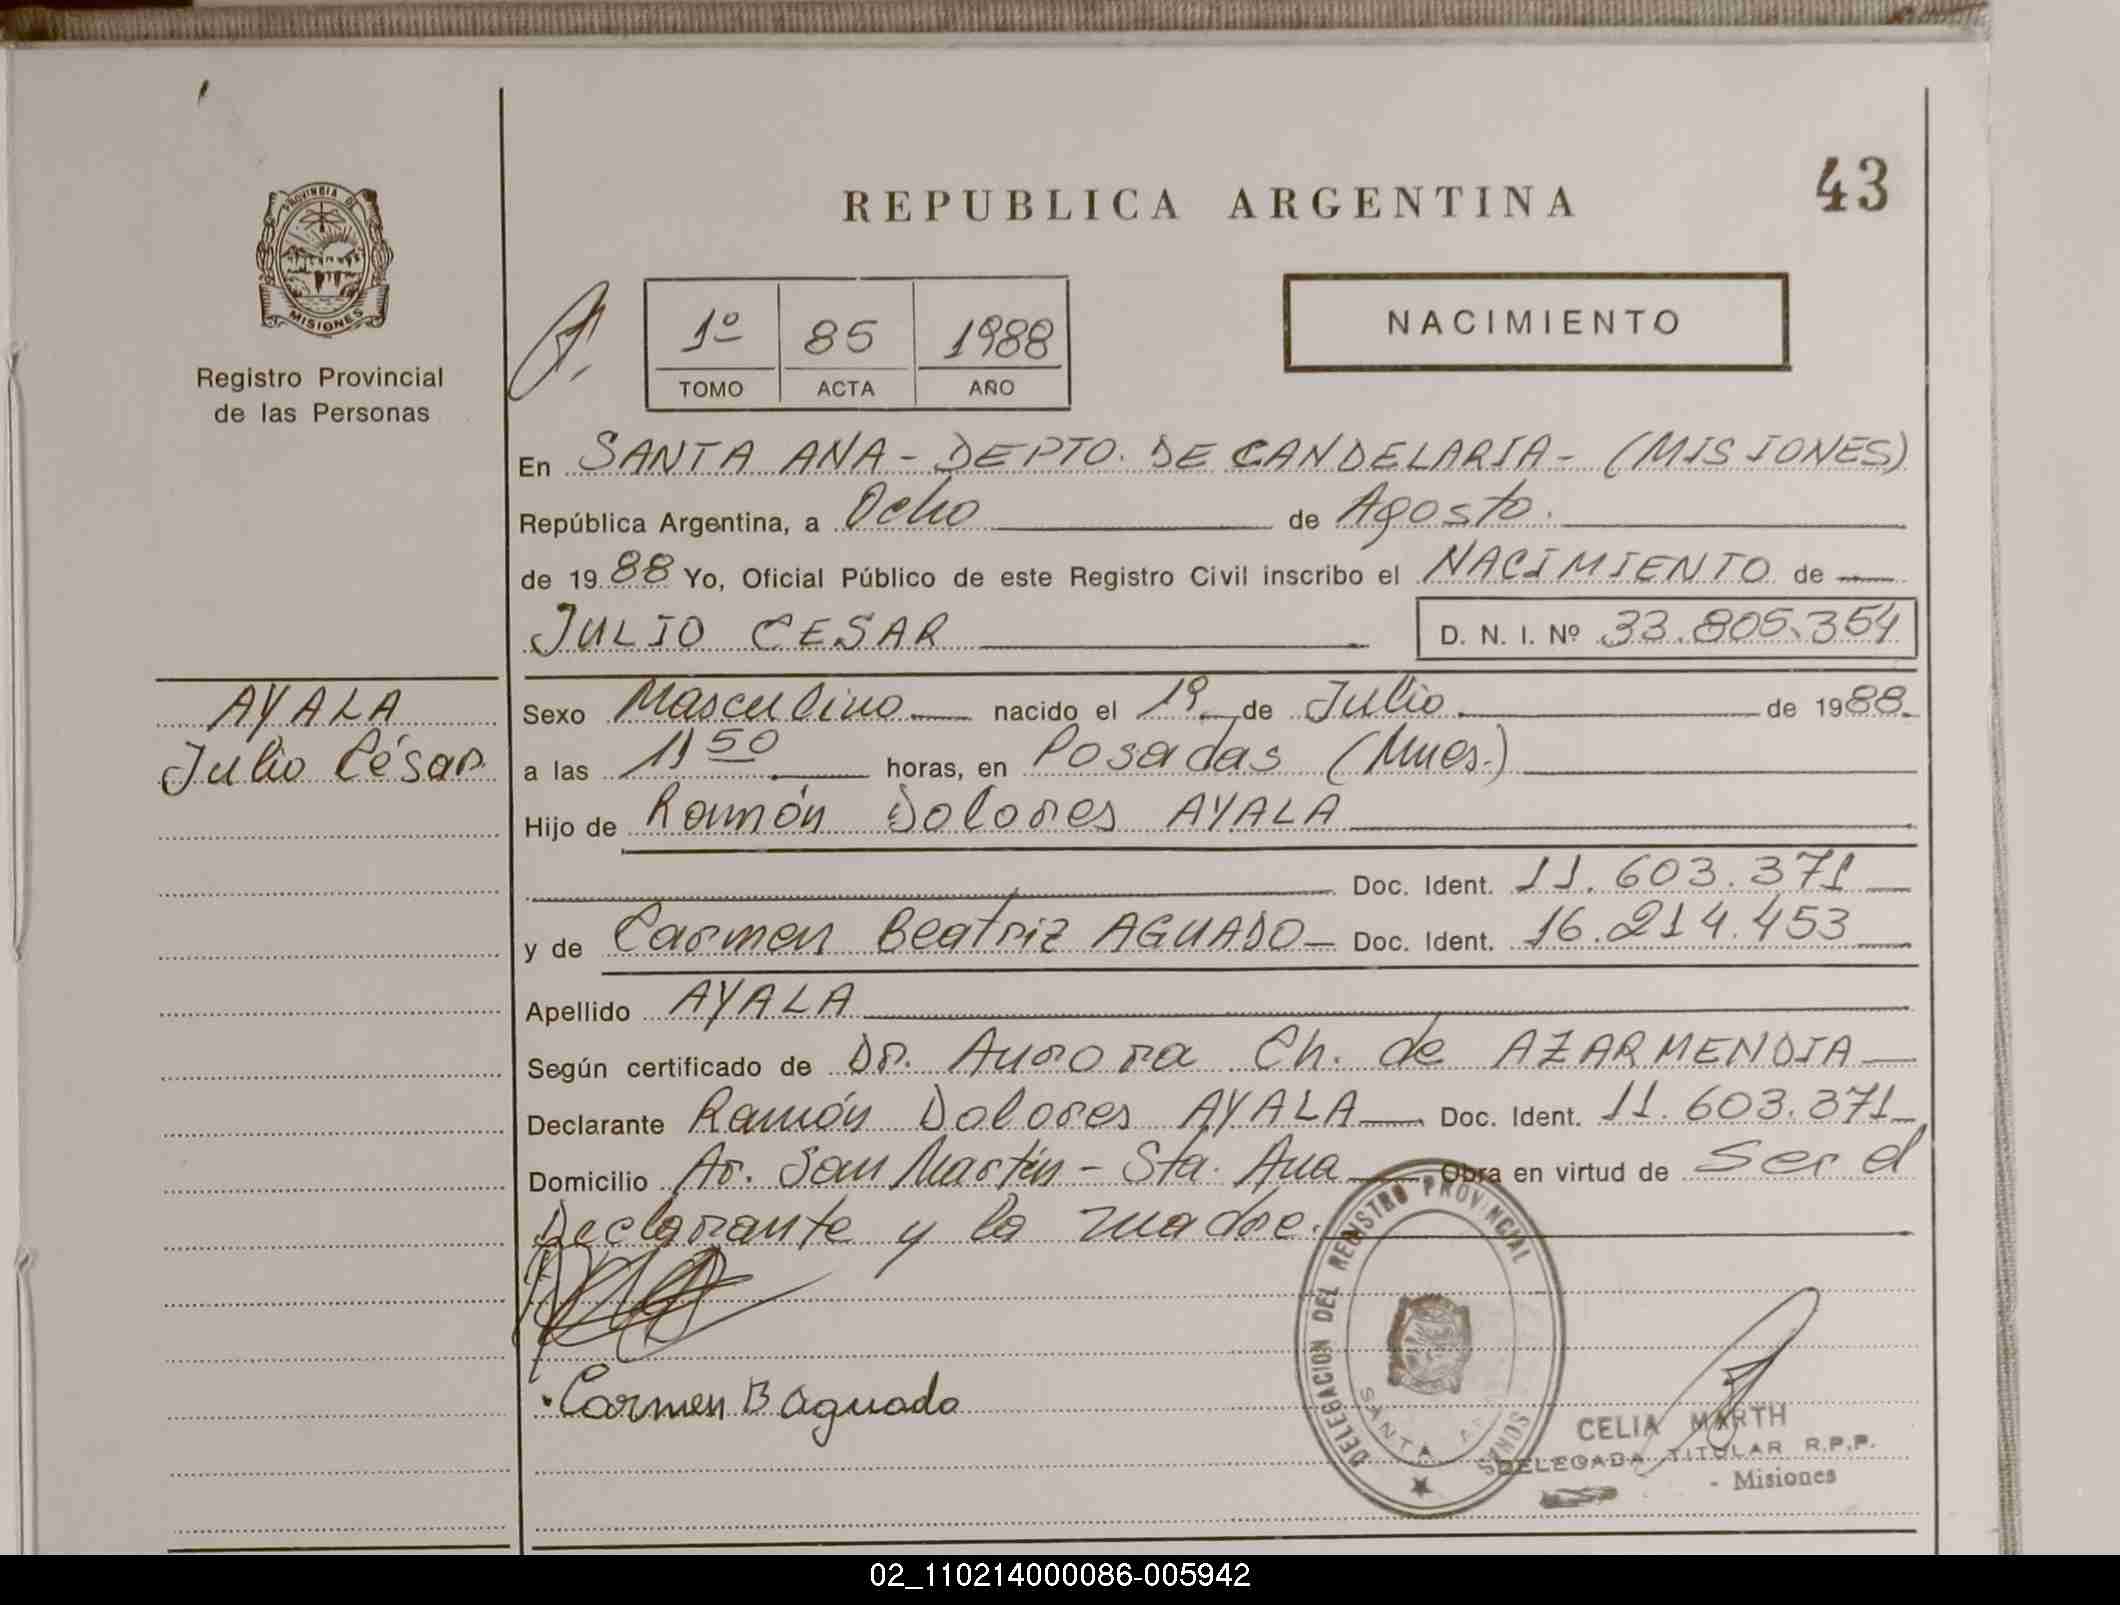 43
REPUBLICA ARGENTINA
PROVINCIA DE
MISIONES
Registro Provincial
de las Personas
1º 85 1988
TOMO ACTA AÑO
NACIMIENTO
En SANTA ANA - DEPTO. DE CANDELARIA - (MISIONES)
República Argentina, a Ocho de Agosto.
de 1988 Yo, Oficial Público de este Registro Civil inscribo el NACIMIENTO de
JULIO CESAR D. N. I. Nº 33.805.354
AYALA
Julio César
Sexo Masculino nacido el 19 de Julio de 1988.
a las 11 50 horas, en Posadas (Mnes.)
Hijo de Ramón Dolores AYALA
Doc. Ident. 11.603.371
y de Carmen Beatriz AGUADO Doc. Ident. 16.214.453
Apellido AYALA
Según certificado de Dr. Aurora Ch. de AZARMENDIA
Declarante Ramón Dolores AYALA Doc. Ident. 11.603.371
Domicilio Av. San Martín - Sta. Ana Obra en virtud de Ser el
Declarante y la madre.
Carmen B Aguado
DELEGACION DEL REGISTRO PROVINCIAL
SANTA
CELIA MARTH
DELEGADA TITULAR R.P.P.
- Misiones
02_110214000086-005942